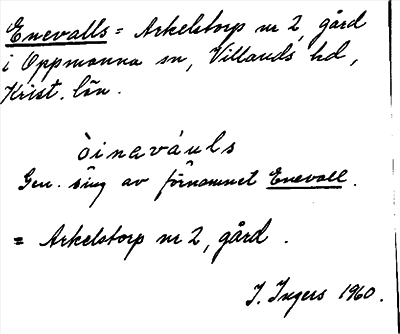 Enevalls = Arkelstorp nr 2, gård
i Oppmanna sn, Villands hd,
Krist. län.
òinaváuls
Gen. sing av förnamnet Enevall.
= Arkelstorp nr 2, gård.
J. Ingers 1960.